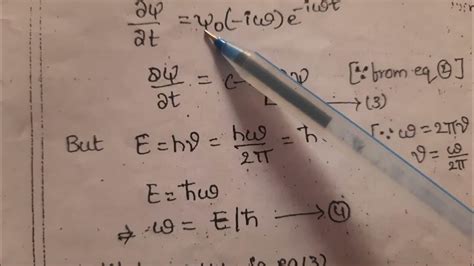 ∂ψ/∂t = ψ₀(-iω)e^{-iωt}
∂ψ/∂t = (- ψ [∵ from eq ②]
→ (3)
But E = hϑ = hω/2π = ħ [∵ ω = 2πϑ
ϑ = ω/2π
E = ħω
⇒ ω = E/ħ → ④